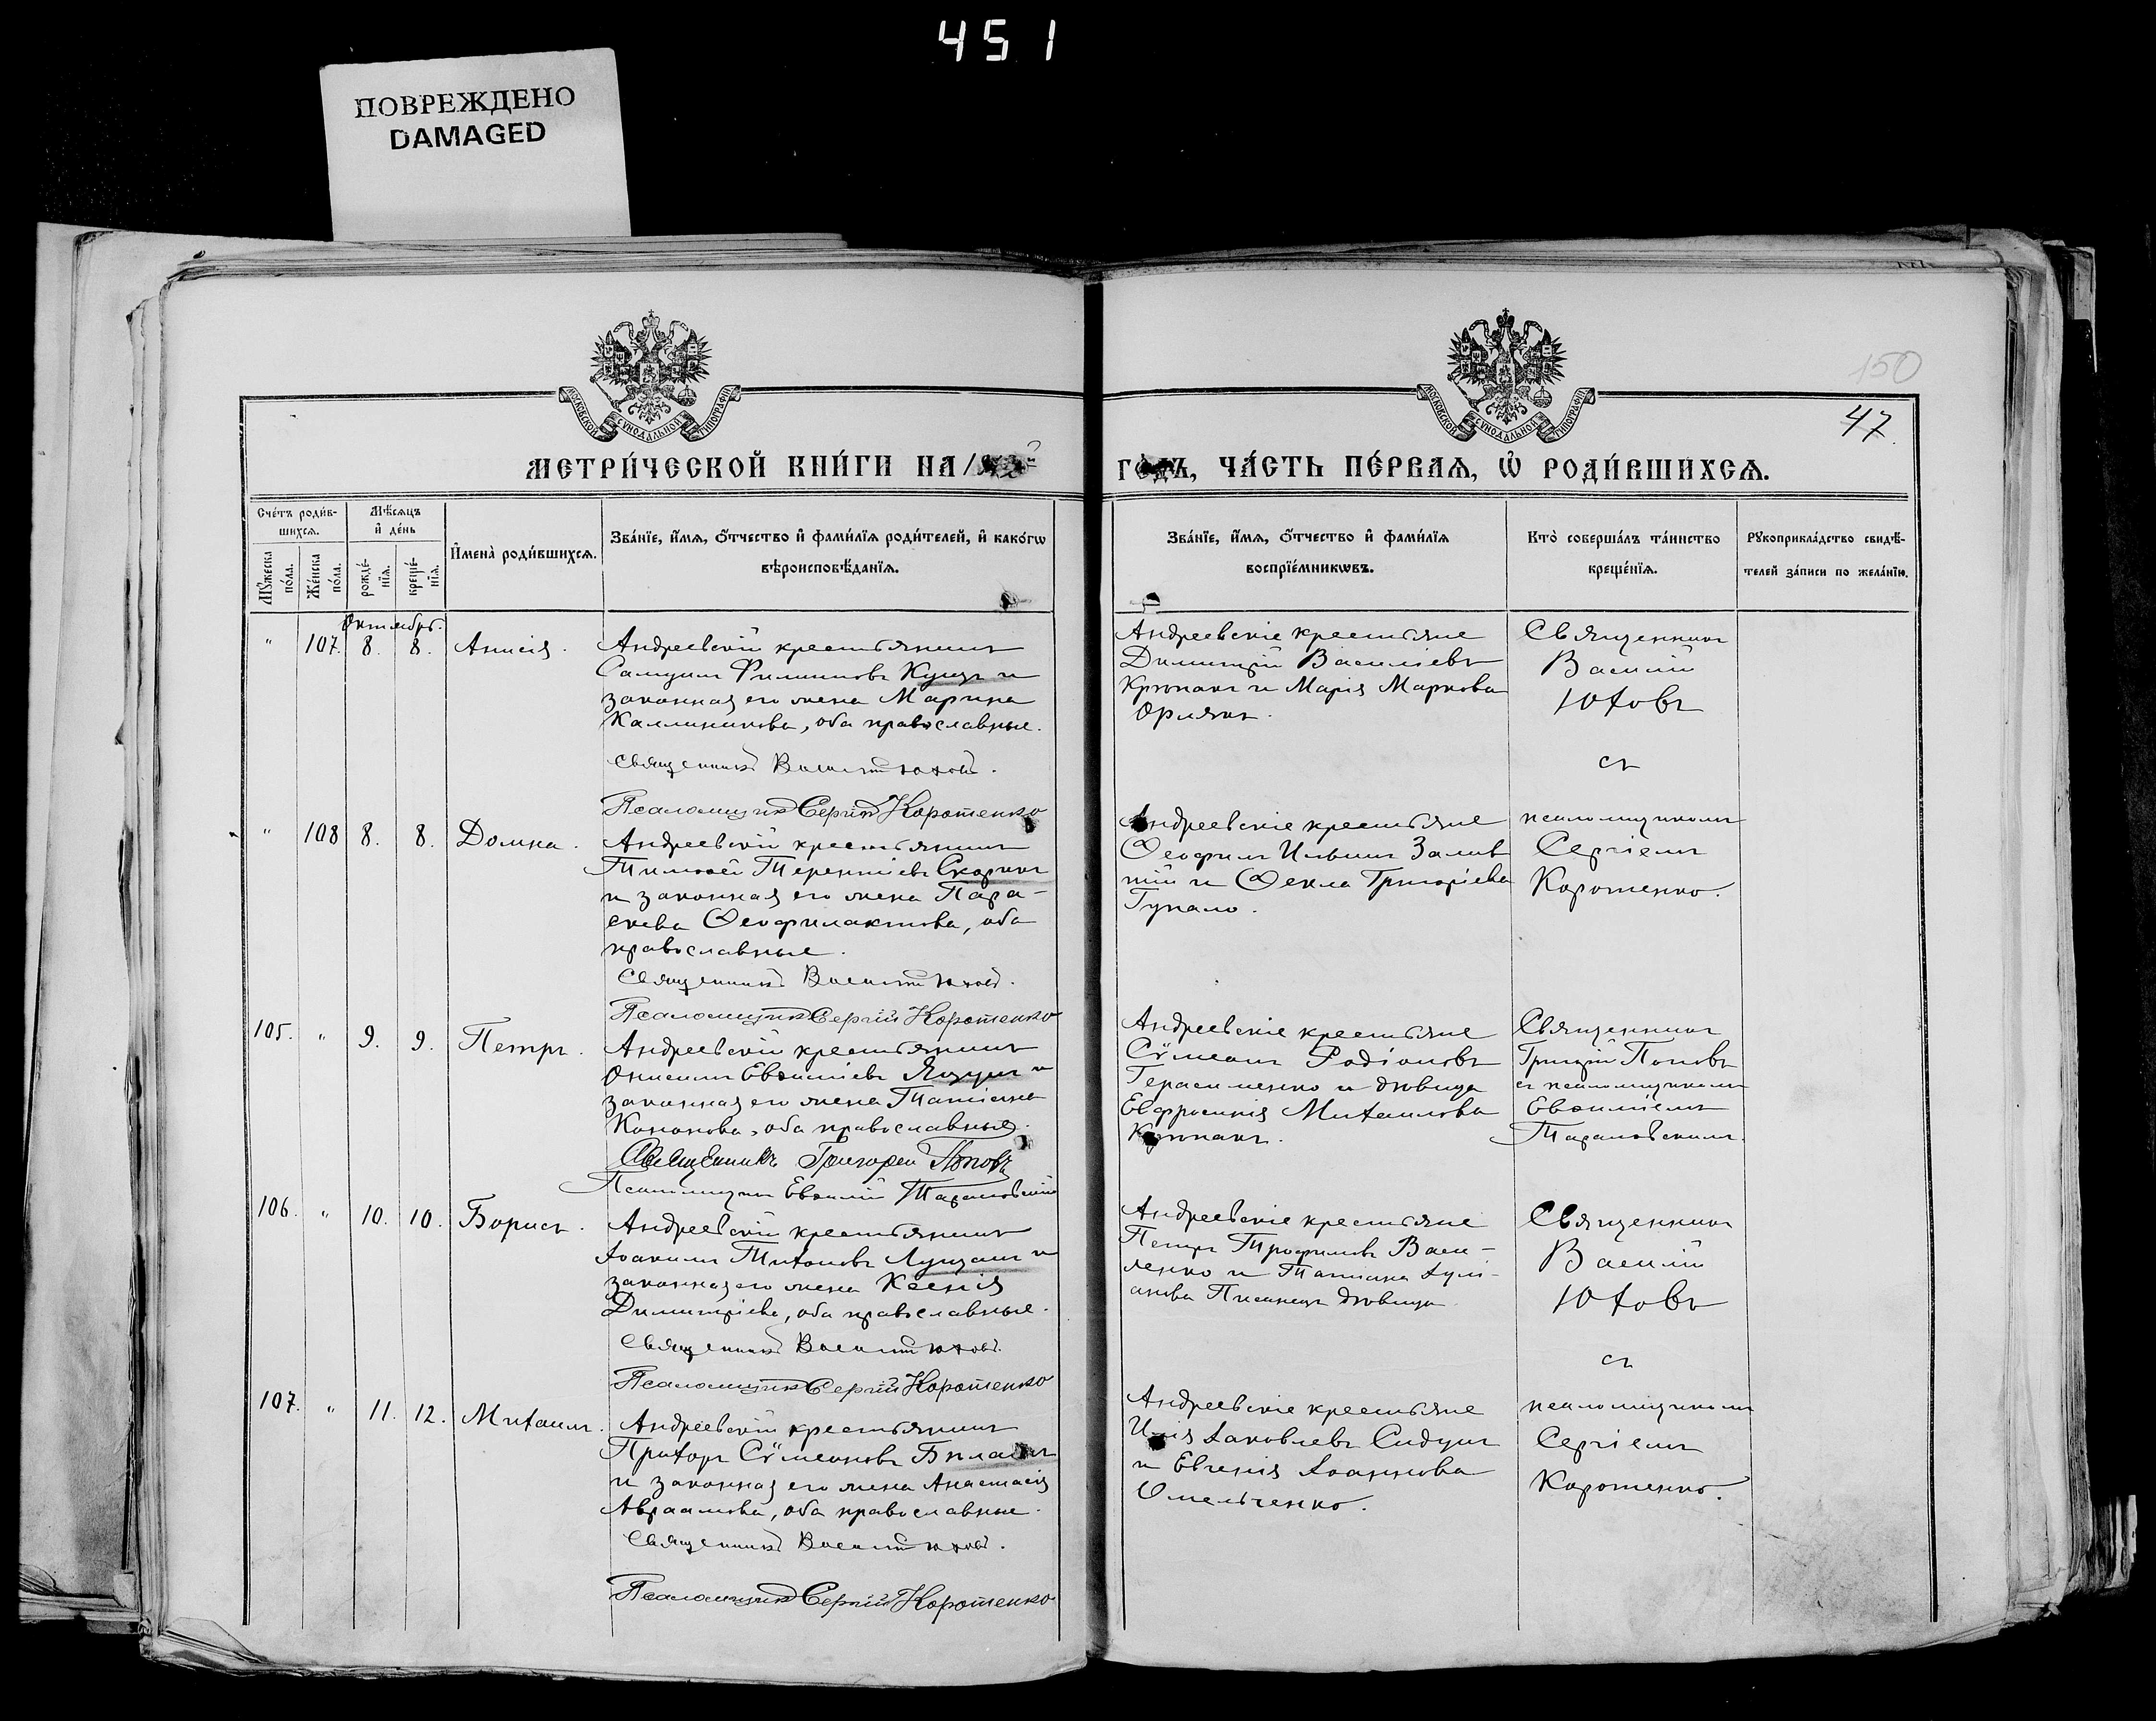 451
ПОВРЕЖДЕНО
DAMAGED
150
47.
МОСКОВСКОЙ СѴНОДАЛЬНОЙ ТИПОГРАФІИ
МОСКОВСКОЙ СѴНОДАЛЬНОЙ ТИПОГРАФІИ
МЕТРИ́ЧЕСКОЙ КНИ́ГИ НА
ГО́ДЪ, ЧА́СТЬ ПЕ́РВАѦ, Ѽ РОДИ́ВШИХСѦ.
Сче́тъ роди́в-
шихсѧ.
Мꙋ́жеска по́ла.
Же́нска по́ла.
Мѣ́сѧцъ
и҆ де́нь
рожде́-нїѧ.
креще́-нїѧ.
И҆мена̀ роди́вшихсѧ.
Зва́нїе, и҆́мѧ, ѻ҆́тчество и҆ фами́лїѧ роди́телей, и҆ како́гѡ
вѣроисповѣ́данїѧ.
Зва́нїе, и҆́мѧ, ѻ҆́тчество и҆ фами́лїѧ
воспрїе́мникѡвъ.
Кто̀ соверша́лъ та́инство
креще́нїѧ.
Рꙋкоприкла́дство свидѣ́-
телей за́писи по жела́нїю.
Октябрь.
" 107. 8. 8. Анисія.
Андреевскій крестьянинъ
Самуилъ Филиповъ Куцъ и
законная его жена Марина
Каллиникова, оба православные.
Священникъ Василій Юховъ.
Псаломщикъ Сергій Коротенко
Андреевскіе крестьяне
Димитрій Василіевъ
Крюпакъ и Марія Маркова
Орлянъ.
Священникъ
Василій
Юховъ
съ
псаломщикомъ
Сергіемъ
Коротенко.
" 108 8. 8. Домна.
Андреевскій крестьянинъ
Тимоѳей Терентіевъ Скорикъ
и законная его жена Пара-
скева Ѳеофилактова, оба
православные.
Священникъ Василій Юховъ.
Псаломщикъ Сергій Коротенко
Андреевскіе крестьяне
Ѳеофилъ Ильинъ
и Ѳекла Григоріева
Гупало.
105. " 9. 9. Петръ.
Андреевскій крестьянинъ
Онисимъ Евѳиміевъ Язунъ и
законная его жена Татіана
Кононова, оба православные.
Священникъ Григорій Поповъ
Псаломщикъ Евѳимій Тарановскій
Андреевскіе крестьяне
Сѵмеонъ Родіоновъ
Герасименко и дѣвица
Евфросинія Михаилова
Крюпакъ.
Священникъ
Григорій Поповъ
съ псаломщикомъ
Евѳиміемъ
Тарановскимъ.
106. " 10. 10. Борисъ.
Андреевскій крестьянинъ
Іоакимъ Тихоновъ Луцанъ и
законная его жена Ксенія
Димитріева, оба православные.
Священникъ Василій Юховъ.
Псаломщикъ Сергій Коротенко
Андреевскіе крестьяне
Петръ Трофимовъ Васи-
ленко и Татіана Іулі-
анова Писанецъ дѣвица
Священникъ
Василій
Юховъ
съ
псаломщикомъ
Сергіемъ
Коротенко.
107. " 11. 12. Михаилъ.
Андреевскій крестьянинъ
Прохоръ Сѵмеоновъ
и законная его жена Анастасія
Авраамова, оба православные.
Священникъ Василій Юховъ.
Псаломщикъ Сергій Коротенко
Андреевскіе крестьяне
Илія Іаковлевъ Сидунъ
и Евгенія Іоаннова
Омельченко.